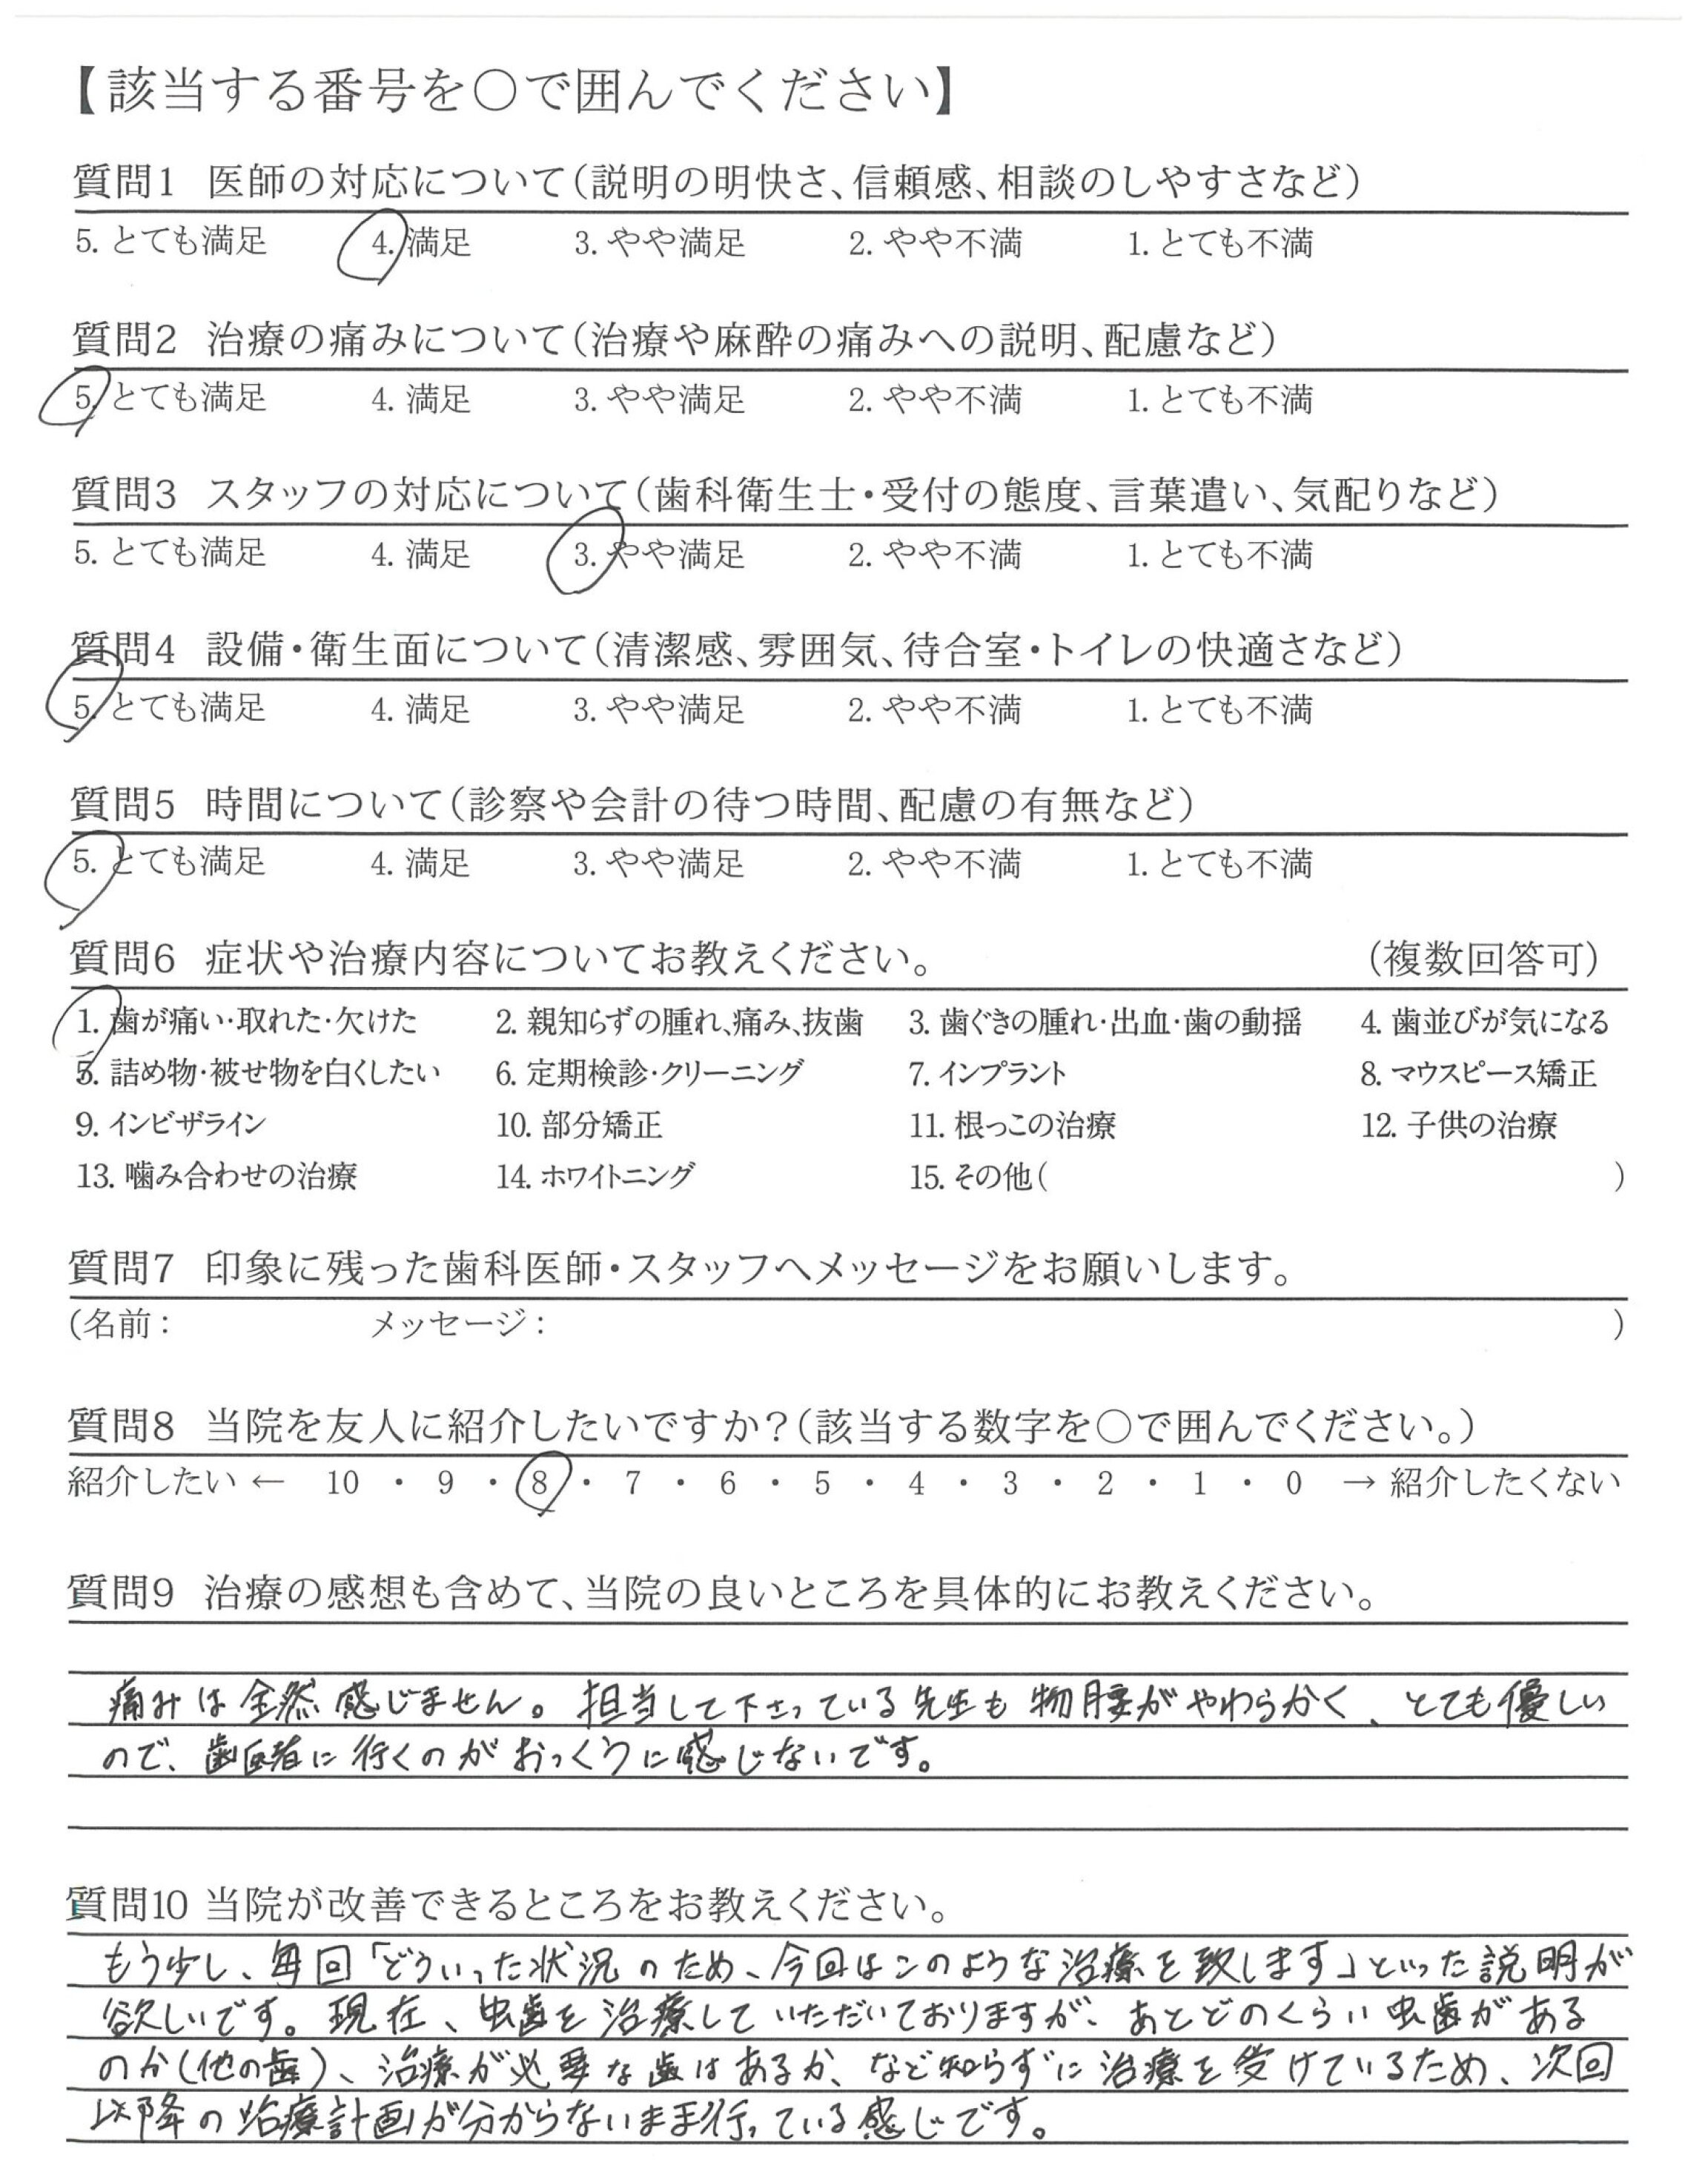 【該当する番号を〇で囲んでください】
質問1 医師の対応について(説明の明快さ、信頼感、相談のしやすさなど)
5. とても満足 4. 満足 3. やや満足 2. やや不満 1. とても不満
質問2 治療の痛みについて(治療や麻酔の痛みへの説明、配慮など)
5. とても満足 4. 満足 3. やや満足 2. やや不満 1. とても不満
質問3 スタッフの対応について(歯科衛生士・受付の態度、言葉遣い、気配りなど)
5. とても満足 4. 満足 3. やや満足 2. やや不満 1. とても不満
質問4 設備・衛生面について(清潔感、雰囲気、待合室・トイレの快適さなど)
5. とても満足 4. 満足 3. やや満足 2. やや不満 1. とても不満
質問5 時間について(診察や会計の待つ時間、配慮の有無など)
5. とても満足 4. 満足 3. やや満足 2. やや不満 1. とても不満
質問6 症状や治療内容についてお教えください。 (複数回答可)
1. 歯が痛い・取れた・欠けた 2. 親知らずの腫れ、痛み、抜歯 3. 歯ぐきの腫れ・出血・歯の動揺 4. 歯並びが気になる
5. 詰め物・被せ物を白くしたい 6. 定期検診・クリーニング 7. インプラント 8. マウスピース矯正
9. インビザライン 10. 部分矯正 11. 根っこの治療 12. 子供の治療
13. 噛み合わせの治療 14. ホワイトニング 15. その他( )
質問7 印象に残った歯科医師・スタッフへメッセージをお願いします。
(名前: メッセージ: )
質問8 当院を友人に紹介したいですか?(該当する数字を〇で囲んでください。)
紹介したい ← 10 ・ 9 ・ 8 ・ 7 ・ 6 ・ 5 ・ 4 ・ 3 ・ 2 ・ 1 ・ 0 → 紹介したくない
質問9 治療の感想も含めて、当院の良いところを具体的にお教えください。
痛みは全然感じません。担当して下さっている先生も物腰がやわらかく、とても優しい
ので、歯医者に行くのがおっくうに感じないです。
質問10 当院が改善できるところをお教えください。
もう少し、毎回「どういった状況のため、今回はこのような治療を致します」といった説明が
欲しいです。現在、虫歯を治療していただいておりますが、あとどのくらい虫歯がある
のか(他の歯)、治療が必要な歯はあるか、など知らずに治療を受けているため、次回
以降の治療計画が分からないまま行っている感じです。